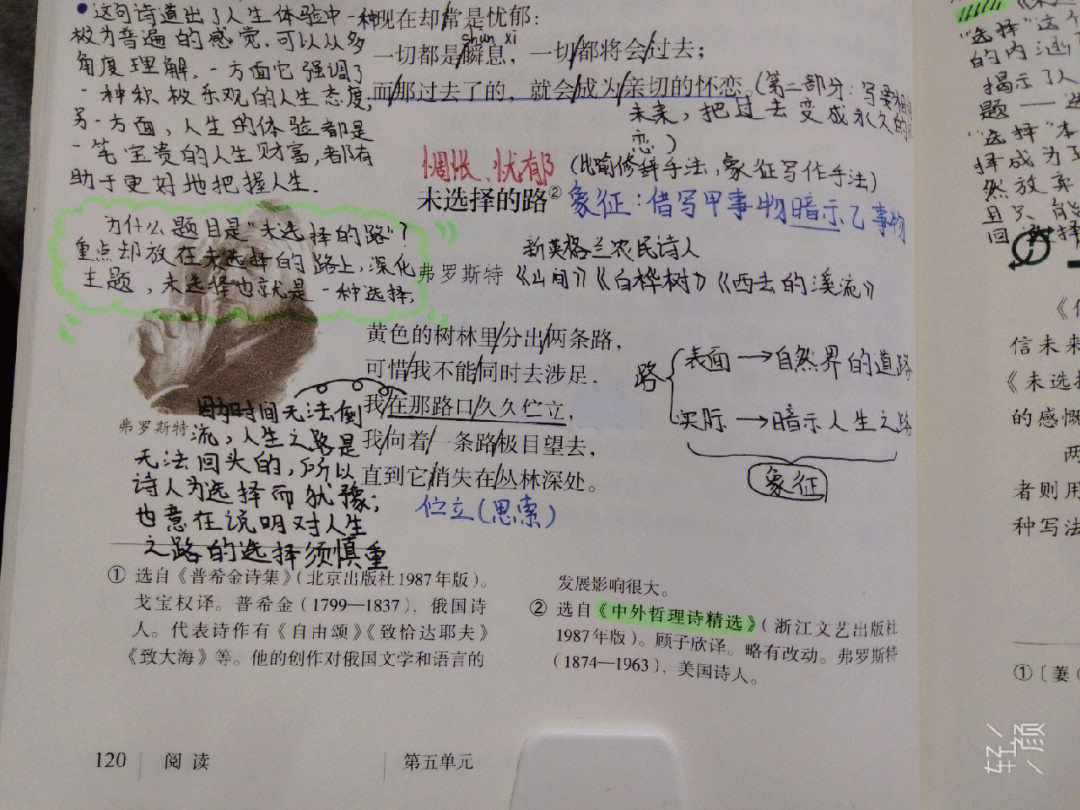 ●这句诗道出了人生体验中一种
极为普遍的感觉,可以从多
角度理解.一方面它强调了
一种积极乐观的人生态度,
另一方面,人生的体验都是
一笔宝贵的人生财富,都有
助于更好地把握人生.
现在却常是忧郁:
shùn xī
一切都是瞬息,一切都将会过去;
而那过去了的,就会成为亲切的怀恋。
(第二部分:写要
未来,把过去变成永久的
恋)
惆怅、忧郁
(比喻修辞手法,象征写作手法)
未选择的路②
象征:借写甲事物暗示乙事物
新英格兰农民诗人
弗罗斯特
《山间》《白桦树》《西去的溪流》
为什么题目是“未选择的路”?
重点却放在未选择的路上,深化
主题,未选择也就是一种选择.
弗罗斯特
黄色的树林里分出两条路,
可惜我不能同时去涉足.
我在那路口久久伫立,
我向着一条路极目望去,
直到它消失在丛林深处。
路
表面→自然界的道路
实际→暗示人生之路
象征
伫立(思索)
因为时间无法倒
流,人生之路是
无法回头的,所以
诗人为选择而犹豫;
也意在说明对人生
之路的选择须慎重
① 选自《普希金诗集》(北京出版社1987年版)。
戈宝权译。普希金(1799—1837),俄国诗
人。代表诗作有《自由颂》《致恰达耶夫》
《致大海》等。他的创作对俄国文学和语言的
发展影响很大。
② 选自《中外哲理诗精选》(浙江文艺出版社
1987年版)。顾子欣译。略有改动。弗罗斯特
(1874—1963),美国诗人。
120 阅读
第五单元
“选择”这个
的内涵
揭示了人
题——选
“选择”本
择成为了
然放弃
且了,能
回
《假
信未来
《未选择
的感慨
两
者则用
种写法
①〔萋(
轻颜